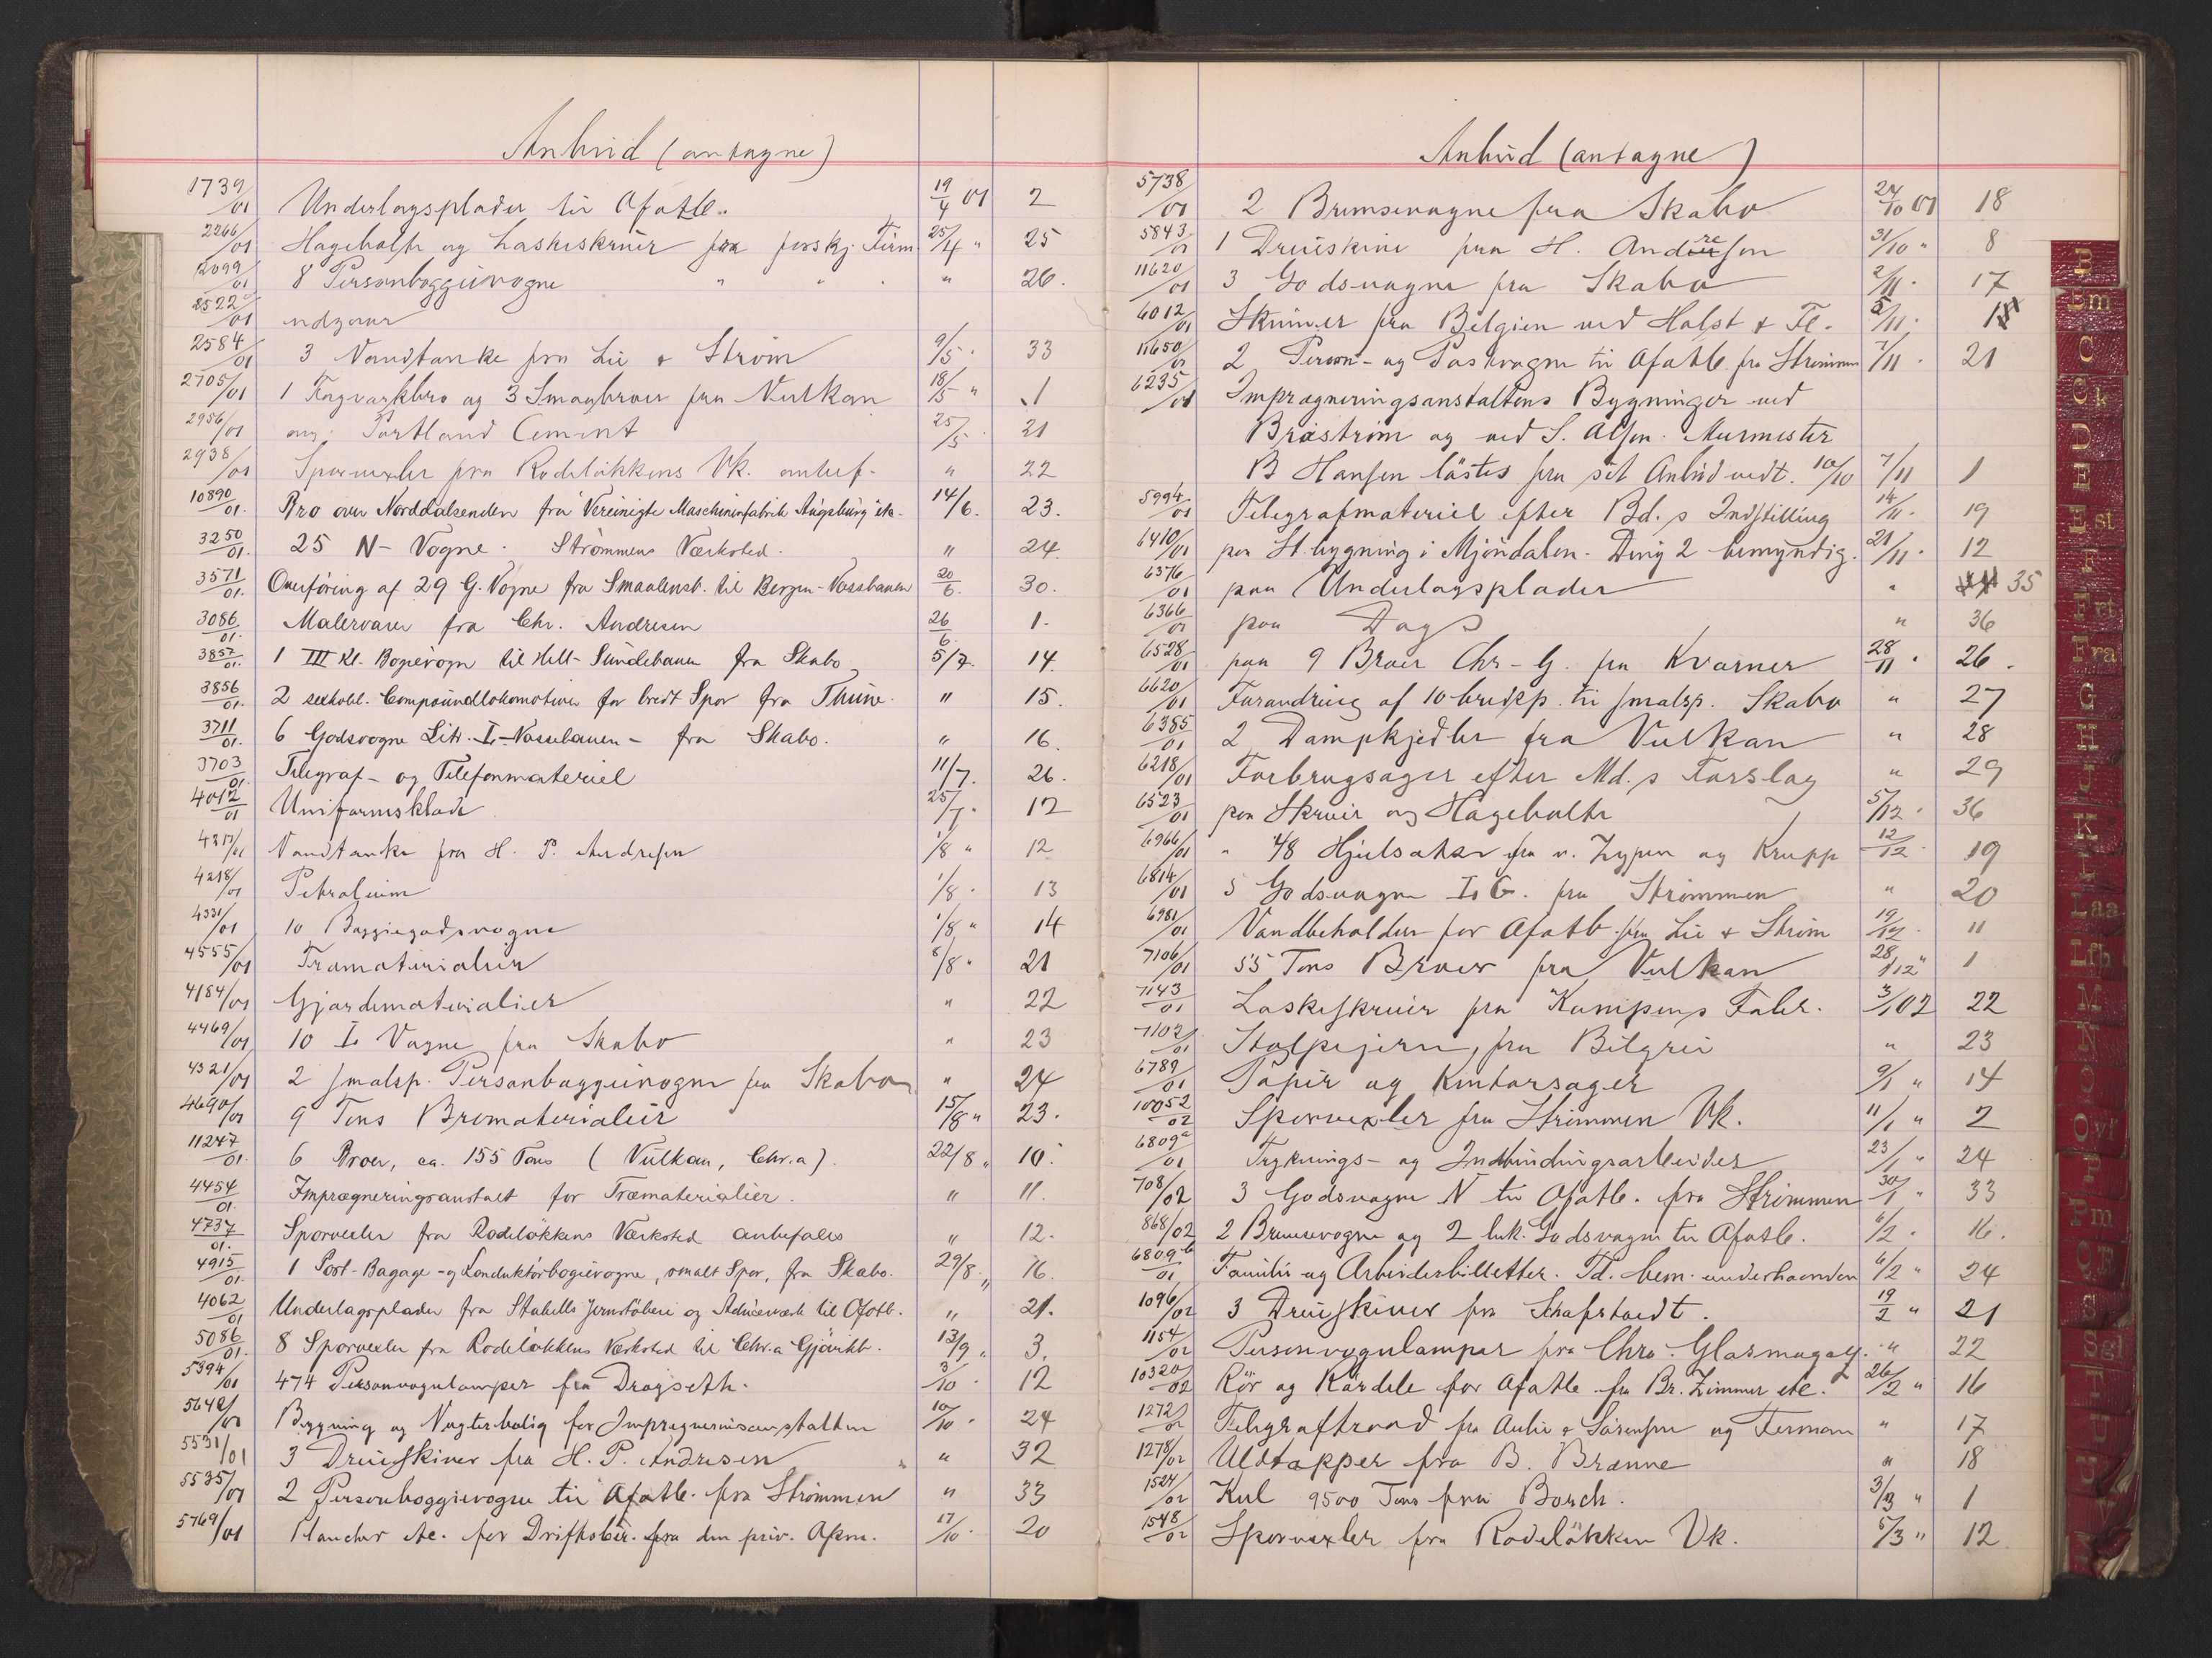 Anbud (antagne)
1739/01 Underlagsplader til Ofotb. 19/4 01 2
2266/01 Hagebolte og Laskeskruer fra forskj. Firm. 25/4 " 25
2099/01 8 Personboggievogne " " " " 26.
2522/01
2584/01 3 Vandtanke fra Lie & Strøm 9/5 " 33
2705/01 1 Fagverkbro og 3 Smaabroer fra Vulkan 18/5 " 1
2956/01 ang. Portland Cement 25/5 21
2938/01 Sporvexler fra Rodeløkkens Vk. anbef. " 22
10890/01. Bro over Norddalsenden fra Vereinigte Maschinenfabrik Augsburg etc. 14/6. 23.
3250/01. 25 N- Vogne. Strømmens Værksted. " 24.
3571/01. Overføring af 29 G. Vogne fra Smaalensb. til Bergen-Vossbanen 20/6. 30.
3086/01. Malervarer fra Chr. Andresen 26/6. 1.
3857/01. 1 III Kl. Bogievogn til Hell-Sundebanen fra Skabo 5/7. 14.
3856/01. 2 sexkobl. Compoundlokomotiver for bredt Spor fra Thune. " 15.
3711/01. 6 Godsvogne Litr. I-Vossebanen- fra Skabo. " 16.
3703/01. Telegraf- og Telefonmateriel 11/7. 26.
4012/01 Uniformsklæde 25/7. 12
4217/01 Vandtanke fra H. P. Andresen 1/8 " 12
4218/01 Petroleum 1/8. 13
4331/01 10 Boggiegodsvogne 1/8 " 14
4555/01 Træmaterialier 8/8 " 21
4184/01 Gjærdematerialier " 22
4469/01 10 Io Vogne fra Skabo " 23
4321/01 2 smalsp. Personboggievogne fra Skabo " 24
4690/01 9 Tons Bromaterialier 15/8 " 23.
11247/01. 6 Broer, ca. 155 Tons (Vulkan, Chr.a). 22/8 " 10.
4454/01. Imprægneringsanstalt for Træmaterialier. " 11.
4737/01. Sporvexler fra Rodeløkkens Værksted anbefales " 12.
4915/01. 1 Post-Bagage-og Konduktørbogievogne, smalt Spor, fra Skabo. 29/8. " 16.
4062/01 Underlagsplader fra Stubells Jernstøberi og Valseværk til Ofotb. " 21.
5086/01. 8 Sporvexler fra Rodeløkkens Værksted til Chr.a Gjøvikb. 13/9 " 3.
5394/01 474 Personvognlamper fra Dragseth. 3/10. 12
5642/01 Bygning og Vogterbolig for Imprægneringsanstalten 10/10. 24
5531/01 3 Dreieskiver fra H. P. Andresen " " 32
5535/01 2 Personboggievogne til Ofotb. fra Strømmen " 33
5769/01 Plancher etc. for Driftsber. fra den priv. Opm. 17/10. 20
Anbud (antagne)
5738/01 2 Bremsevogne fra Skabo 24/10 01 18
5843/01 1 Dreieskive fra H. Andresen 31/10 " 8
11620/01 3 Godsvogne fra Skabo 2/11. 17
6012/01 Skinner fra Belgien ved Holst & Fl. 5/11.
11650/01 2 Person- og Postvogne til Ofotb. fra Strømmen 7/11. 21
6235/01 Imprægneringsanstaltens Bygninger ved
Brastrøm og ved S. Olsen. Murmester
B Hansen løstes fra sit Anbud vedt. 10/10 7/11 1
5994/01 Telegrafmateriel efter Bd.s Indstilling 14/11. 19
6410/01 paa St.bygning i Mjøndalen. Dvig 2 bemyndig. 21/11. 12
6376/01 paa Underlagsplader " 35
6366/01 paa Dags " 36
6528/01 paa 9 Broer Chr-G. fra Kværner 28/11. 26.
6620/01 Forandring af 10 bredsp. til smalsp. Skabo " 27
6385/01 2 Dampkjedler fra Vulkan " 28
6218/01 Forbrugsager efter Md.s Forslag " 29
6523/01 paa Skruer og Hagebolte 5/12. 36
6966/01 " 48 Hjulsatser fra v. Zypen og Krupp 12/12. 19
6814/01 5 Godsvogne Io G. fra Strømmen " 20
6981/01 Vandbeholder for Ofotb. fra Lie & Strøm 19/12. 11
7106/01 55 Tons Broer fra Vulkan 28/12 " 1
7143/01 Laskeskruer fra Kampens Fabr. 3/1 02 22
7102/01 Stolpejern, fra Bilgrei " 23
6789/01 Papir og Kontorsager 9/1 " 14
10052/02 Sporvexler fra Strømmen Vk. 11/1 " 2
6809a/01 Tryknings- og Indbindingsarbeider 23/1 " 24
708/02 3 Godsvogne N til Ofotb. fra Strømmen 30/1 " 33
868/02 2 Bremsevogne og 2 luk. Godsvogne til Ofotb. 6/2. 16.
6809b/01 Familie og Arbeiderbilletter. Td. bem. underhaanden 6/2 " 24
1096/02 3 Dreieskiver fra Schafstædt. 19/2 " 21
1154/02 Personvognlamper fra Chra. Glasmagas. " 22
10320/02 Rør og Rørdele for Ofotb. fra Br. Zimmer etc. 26/2 " 16
1272/02 Telegraftraad fra Aulie & Sørensen og Ferman " 17
1278/02 Uldtæpper fra B. Brænne " 18
1524/02 Kul 9500 Tons fra Borch. 3/3 " 1
1548/02 Sporvexler fra Rodeløkken Vk. 5/3 " 12
B
C
E
Est
F
Fra
G
H
J
K
L
Laa
M
N
O
P
Pm
S
T